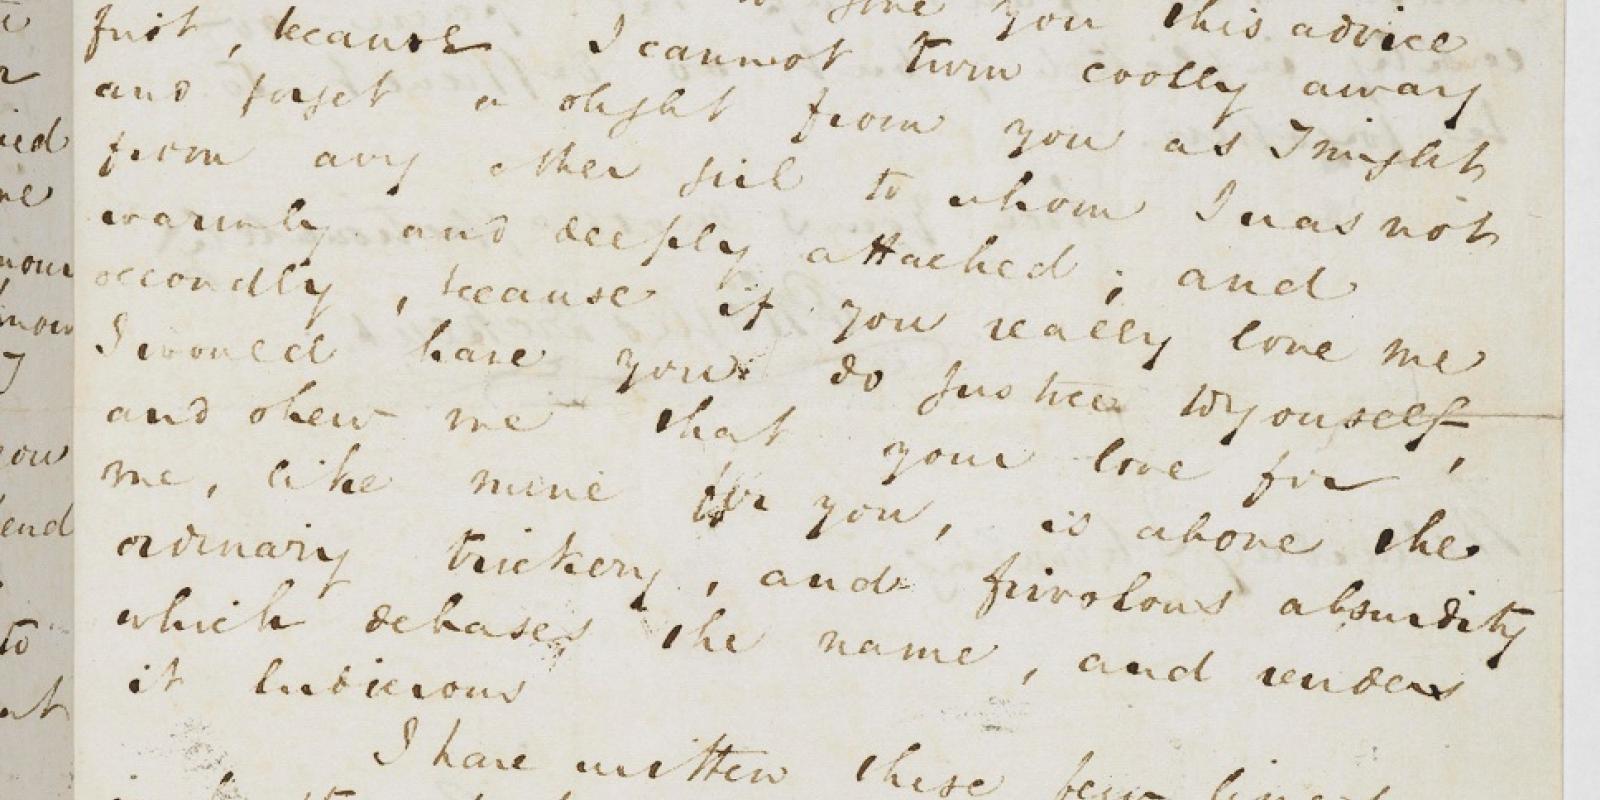 give you this advice
first, because I cannot turn coolly away
and forget a slight from you as I might
from any other girl to whom I was not
warmly and deeply attached; and
secondly, because if you really love me
I would have you do justice to yourself,
and shew me that your love for
me, like mine for you, is above the
ordinary trickery, and frivolous absurdity
which debases the name, and renders
it ludicrous
I have written these few lines
ied
me
now
you
end
to